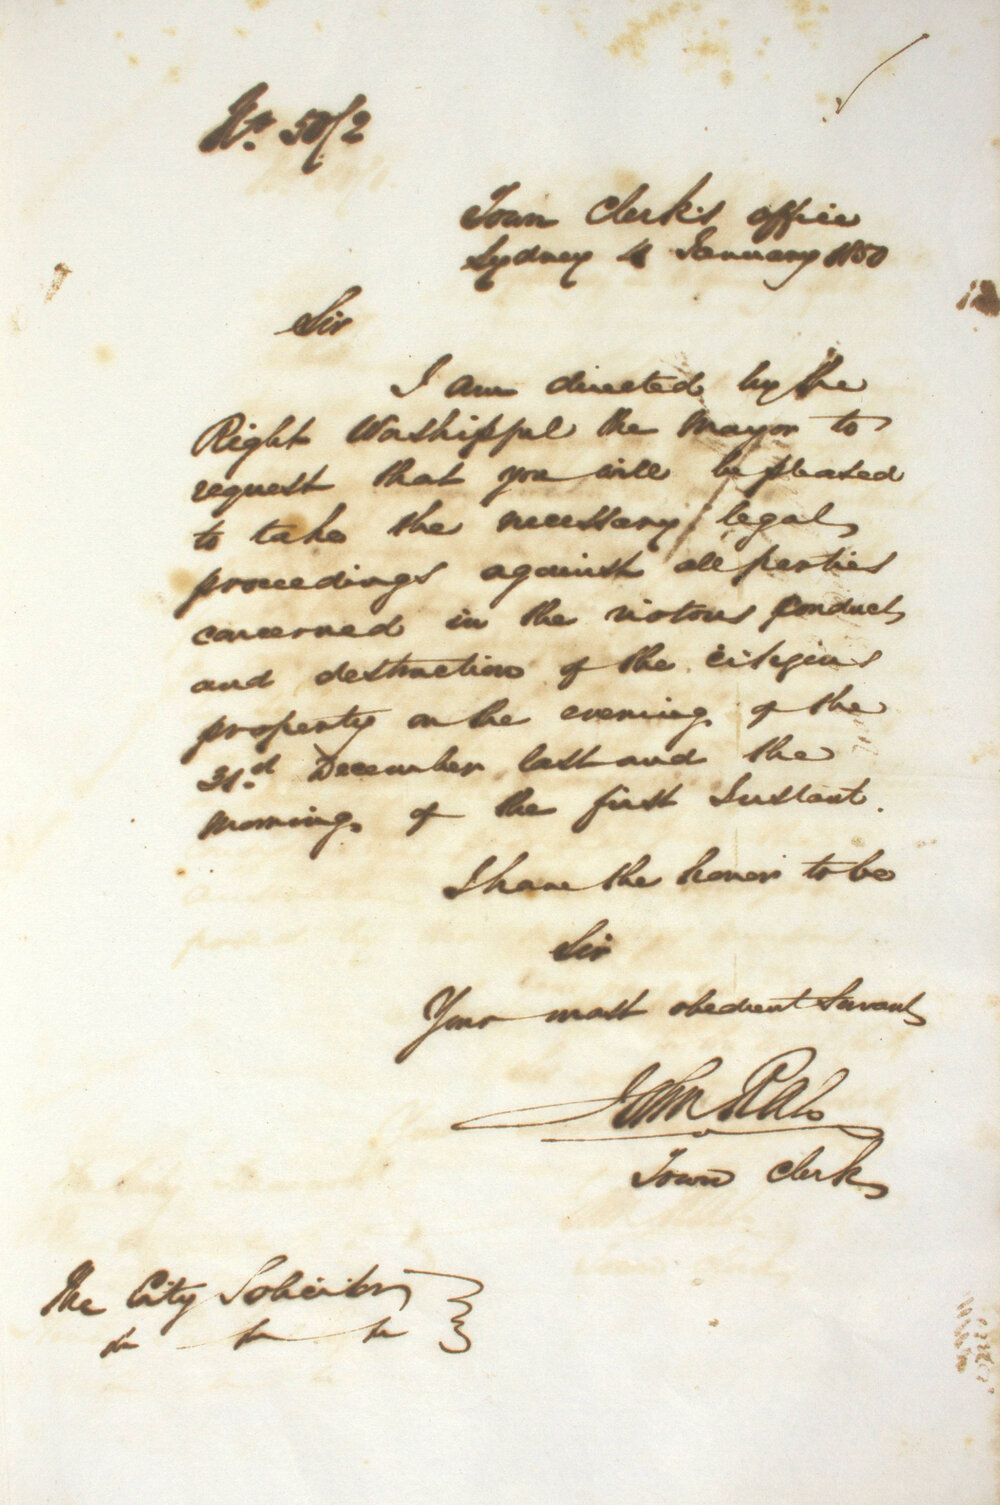 No. 50/2
Town Clerk's office
Sydney 4 January 1850
Sir
I am directed by the
Right Worshipful the Mayor to
request that you will be pleased
to take the necessary legal
proceedings against all parties
concerned in the riotous conduct
and destruction of the citizens
property on the evening of the
31st December last and the
morning of the first Instant.
I have the honor to be
Sir
Your most obedient Servant
John Rae
Town Clerk
The City Solicitor